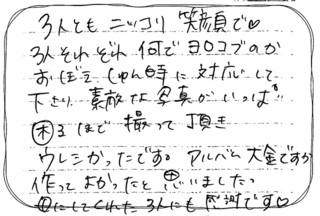 3人とも ニッコリ 笑顔で♡
3人それぞれ 何で ヨロコブのか
おぼえ しゅん時に 対応して
下さり 素敵な写真がいっぱい
困るほど 撮って頂き
ウレシかったです。 アルバム 大金ですが
作って よかったと 思いました
にしてくれた 3人にも 感謝です♡